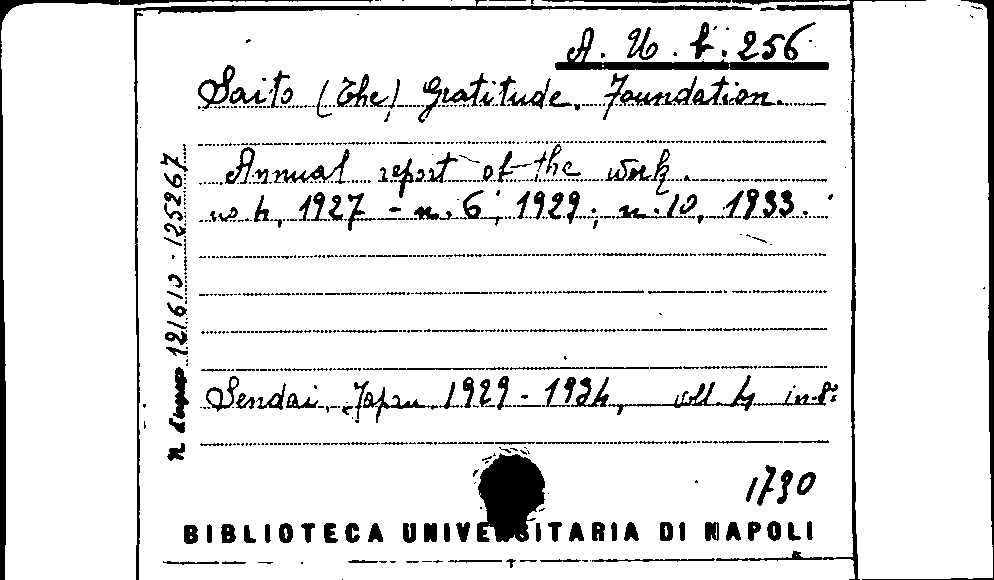 A. U. b. 256
Saito (The) Gratitude Foundation.
Annual report of the work.
no 4, 1927 - n. 6, 1929; n. 10, 1933.
Sendai, Japan 1929 - 1934, voll. 4 in-8°
N. d'ingresso 121610 - 125267
1790
BIBLIOTECA UNIVERSITARIA DI NAPOLI